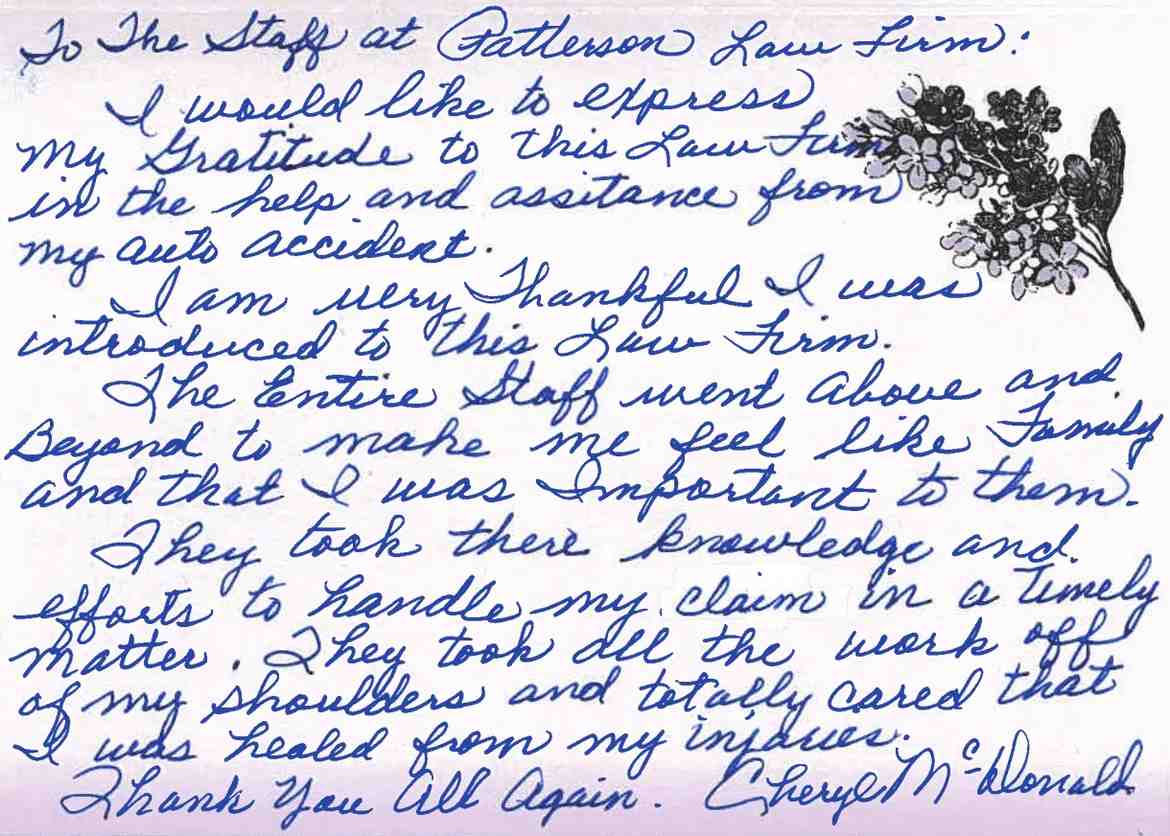 To The Staff at Patterson Law Firm:
I would like to express
My Gratitude to this Law Firm
in the help and assitance from
my auto accident.
I am very Thankful I was
introduced to this Law Firm.
The Entire Staff went Above and
Beyond to make me feel like Family
and that I was Important to them.
They took there knowledge and
efforts to handle my claim in a Timely
Matter. They took all the work off
of my shoulders and totally cared that
I was healed from my injaues.
Thank You All Again. Cheryl McDonald